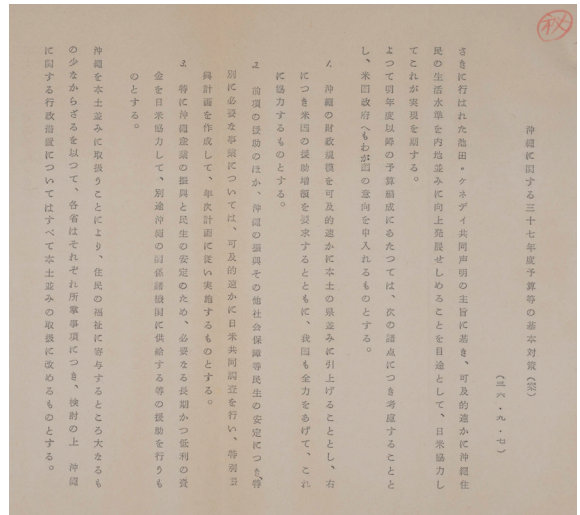 秘
沖縄に関する三十七年度予算等の基本対策（案）
（三六・九・七）
さきに行はれた池田・ケネデイ共同声明の主旨に基き、可及的速かに沖縄住
民の生活水準を内地並みに向上発展せしめることを目途として、日米協力し
てこれが実現を期する。
よつて明年度以降の予算編成にあたつては、次の諸点につき考慮することと
し、米国政府へもわが国の意向を申入れるものとする。
1. 沖縄の財政規模を可及的速かに本土の県並みに引上げることとし、右
につき米国の援助増額を要求するとともに、我国も全力をあげて、これ
に協力するものとする。
2. 前項の援助のほか、沖縄の振興その他社会保障等民生の安定につき、特
別に必要な事業については、可及的速かに日米共同調査を行い、特別計
画計画を作成して、年次計画に従い実施するものとする。
3. 特に沖縄産業の振興と民生の安定のため、必要なる長期かつ低利の資
金を日米協力して、別途沖縄の関係諸機関に供給する等の援助を行うも
のとする。
沖縄を本土並みに取扱うことにより、住民の福祉に寄与するところ大なるも
の少なからざるを以つて、各省はそれぞれ所掌事項につき、検討の上　沖縄
に関する行政措置についてはすべて本土並みの取扱に改めるものとする。